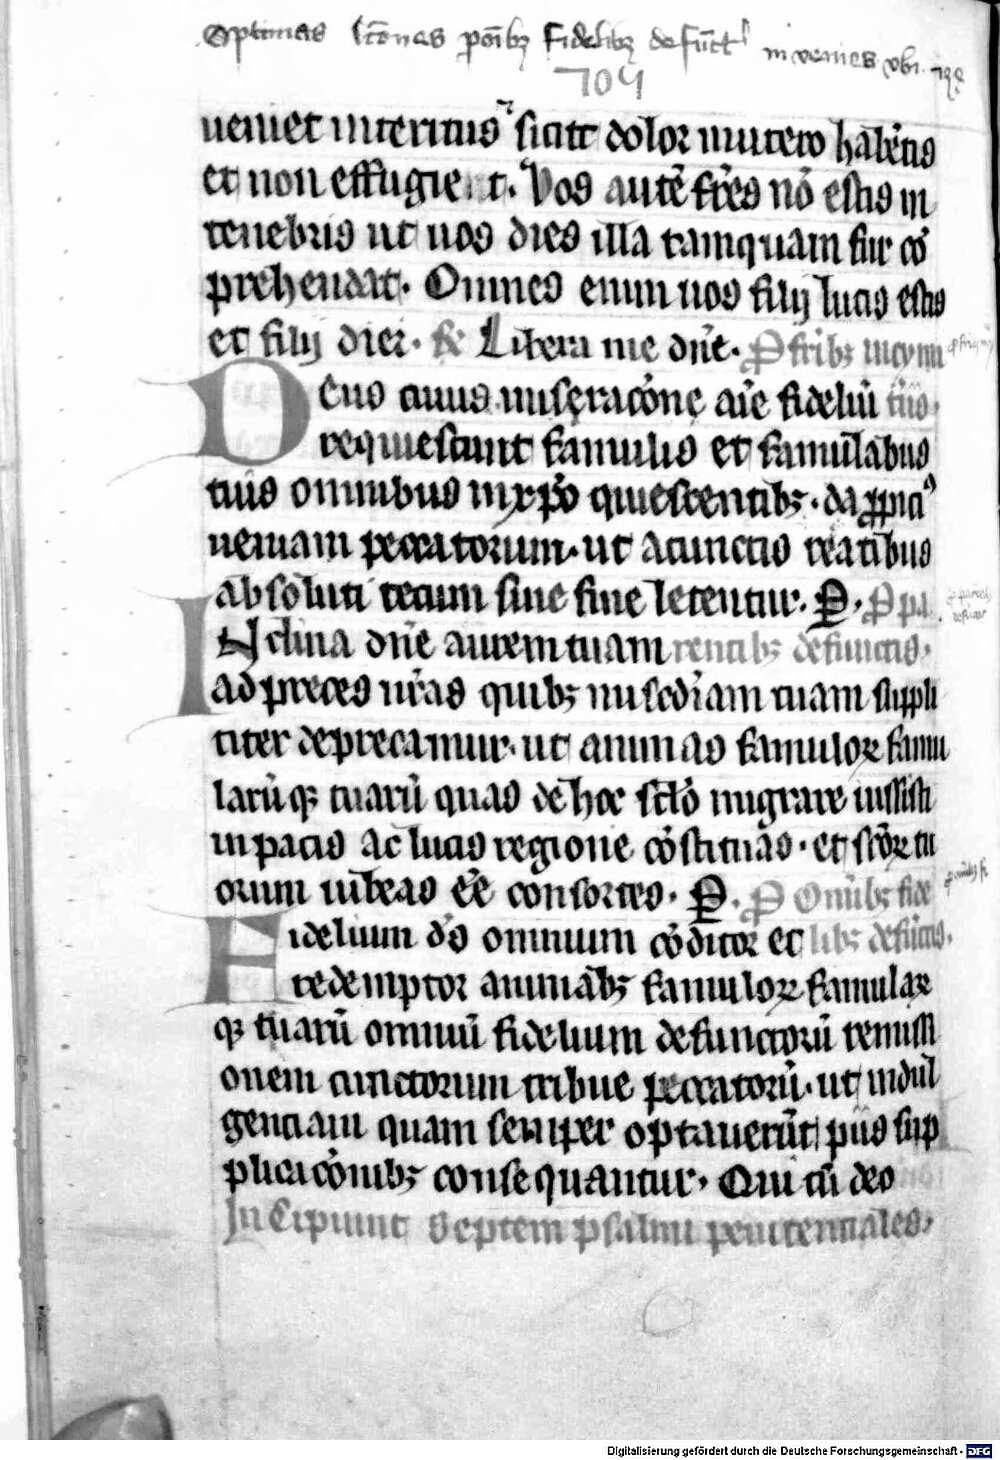 Optimas lc̄ones p̄ oīb; fidelib; defūct' in venies vbi
709
ueniet interitus sicut dolor in utero hab̄etis
et non effugient. Vos autē fr̄es nō estis in
tenebris ut uos dies illa tamquam fur cō
prehendat. Omnes enim uos filij lucis estis
et filij diei. R Libera me dn̄e. P fr̄ib; in cymi
Deus cuius miseracōne aīe fideliū tūo
requiescunt famulis et famulabus
tuis omnibus in xp̄o quiescentib;. da ꝓpici9
ueniam peccatorum. ut a cunctis reatibus
absoluti tecum sine fine letentur. P. P pa
INclina dn̄e aurem tuam rentib; defunctis.
ad preces nr̄as quib; misc̄diam tuam suppli
citer deprecamur. ut animas famuloꝝ famu
larūq; tuarū quas de hoc sc̄lo migrare iussisti
in pacis ac lucis regione cōstituas. et sc̄oꝝ tu
orum iubeas ēē consortes. P. P omīb; fide
Fidelium ds̄ omnium cōditor et lib; defūctis.
redemptor animab; famuloꝝ famulaꝝ
q; tuarū omniū fidelium defunctorū remissi
onem cunctorum tribue peccatorū. ut indul
genciam quam semper optauerūt piis sup
plicacōnib; consequantur. Qui cū deo
Incipiunt septem psalmi penitentiales.
Digitalisierung gefördert durch die Deutsche Forschungsgemeinschaft - DFG